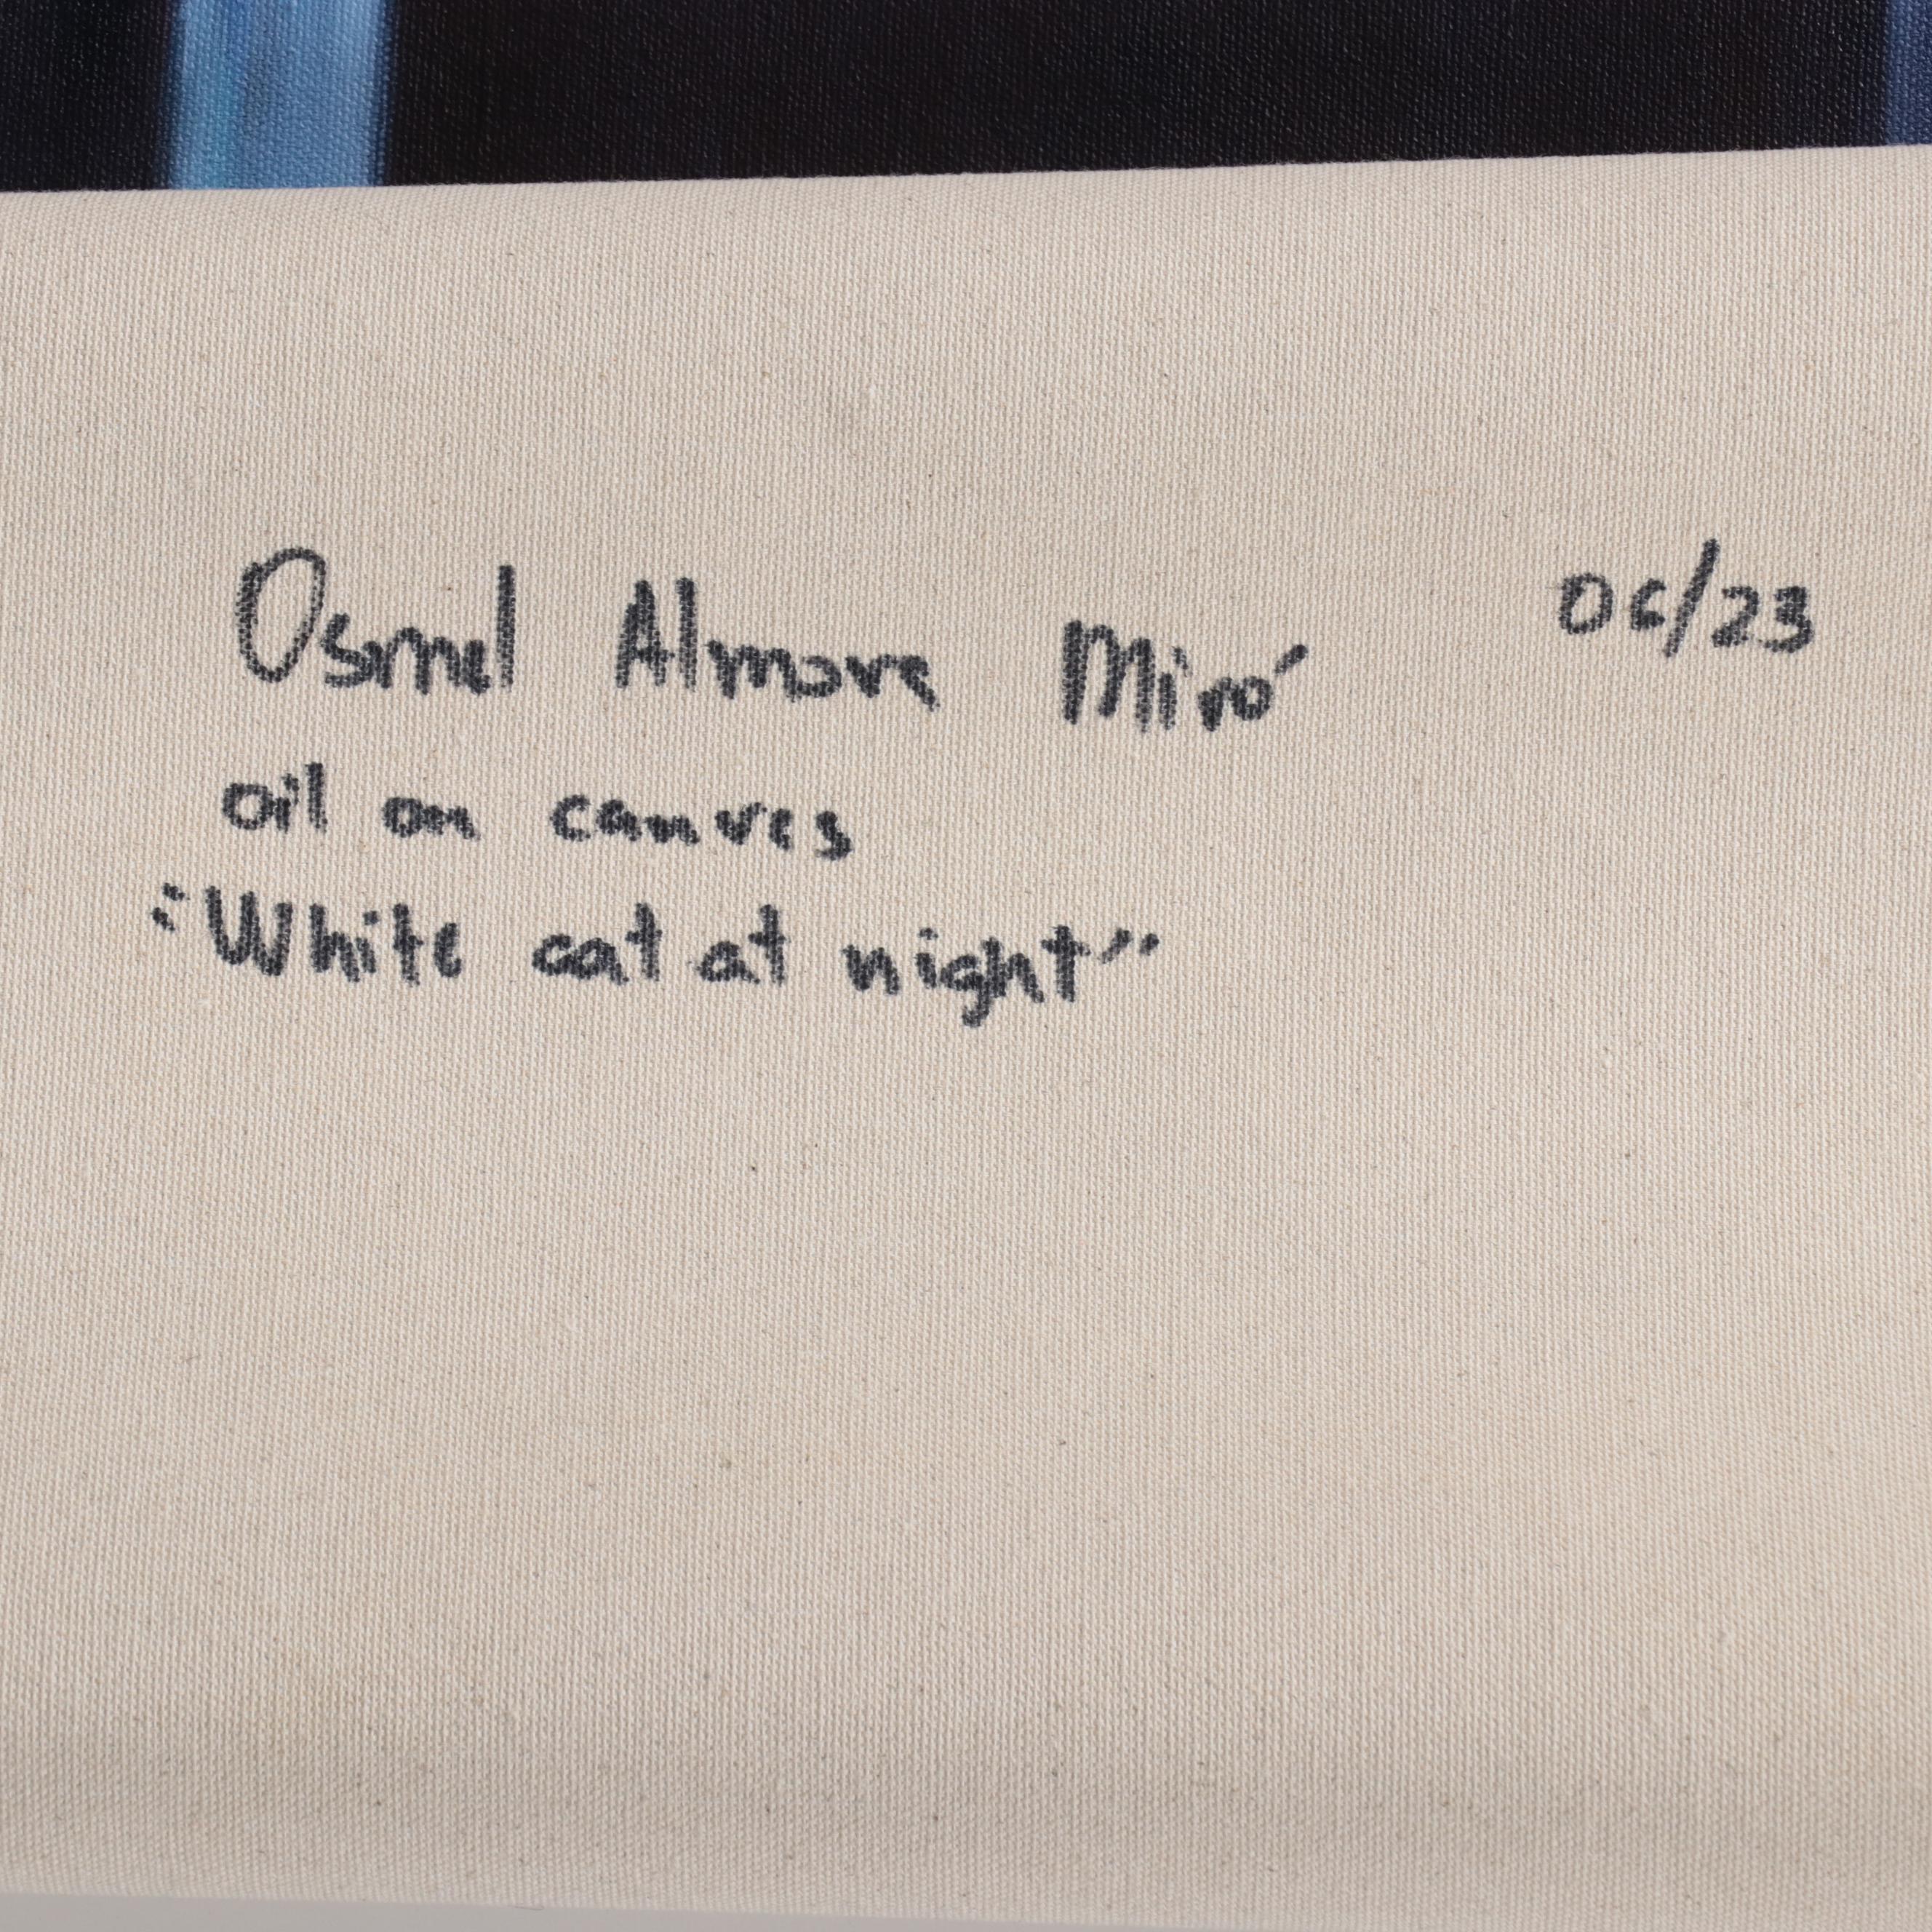 Osmel Almora Miró 06/23
oil on canvas
"White cat at night"